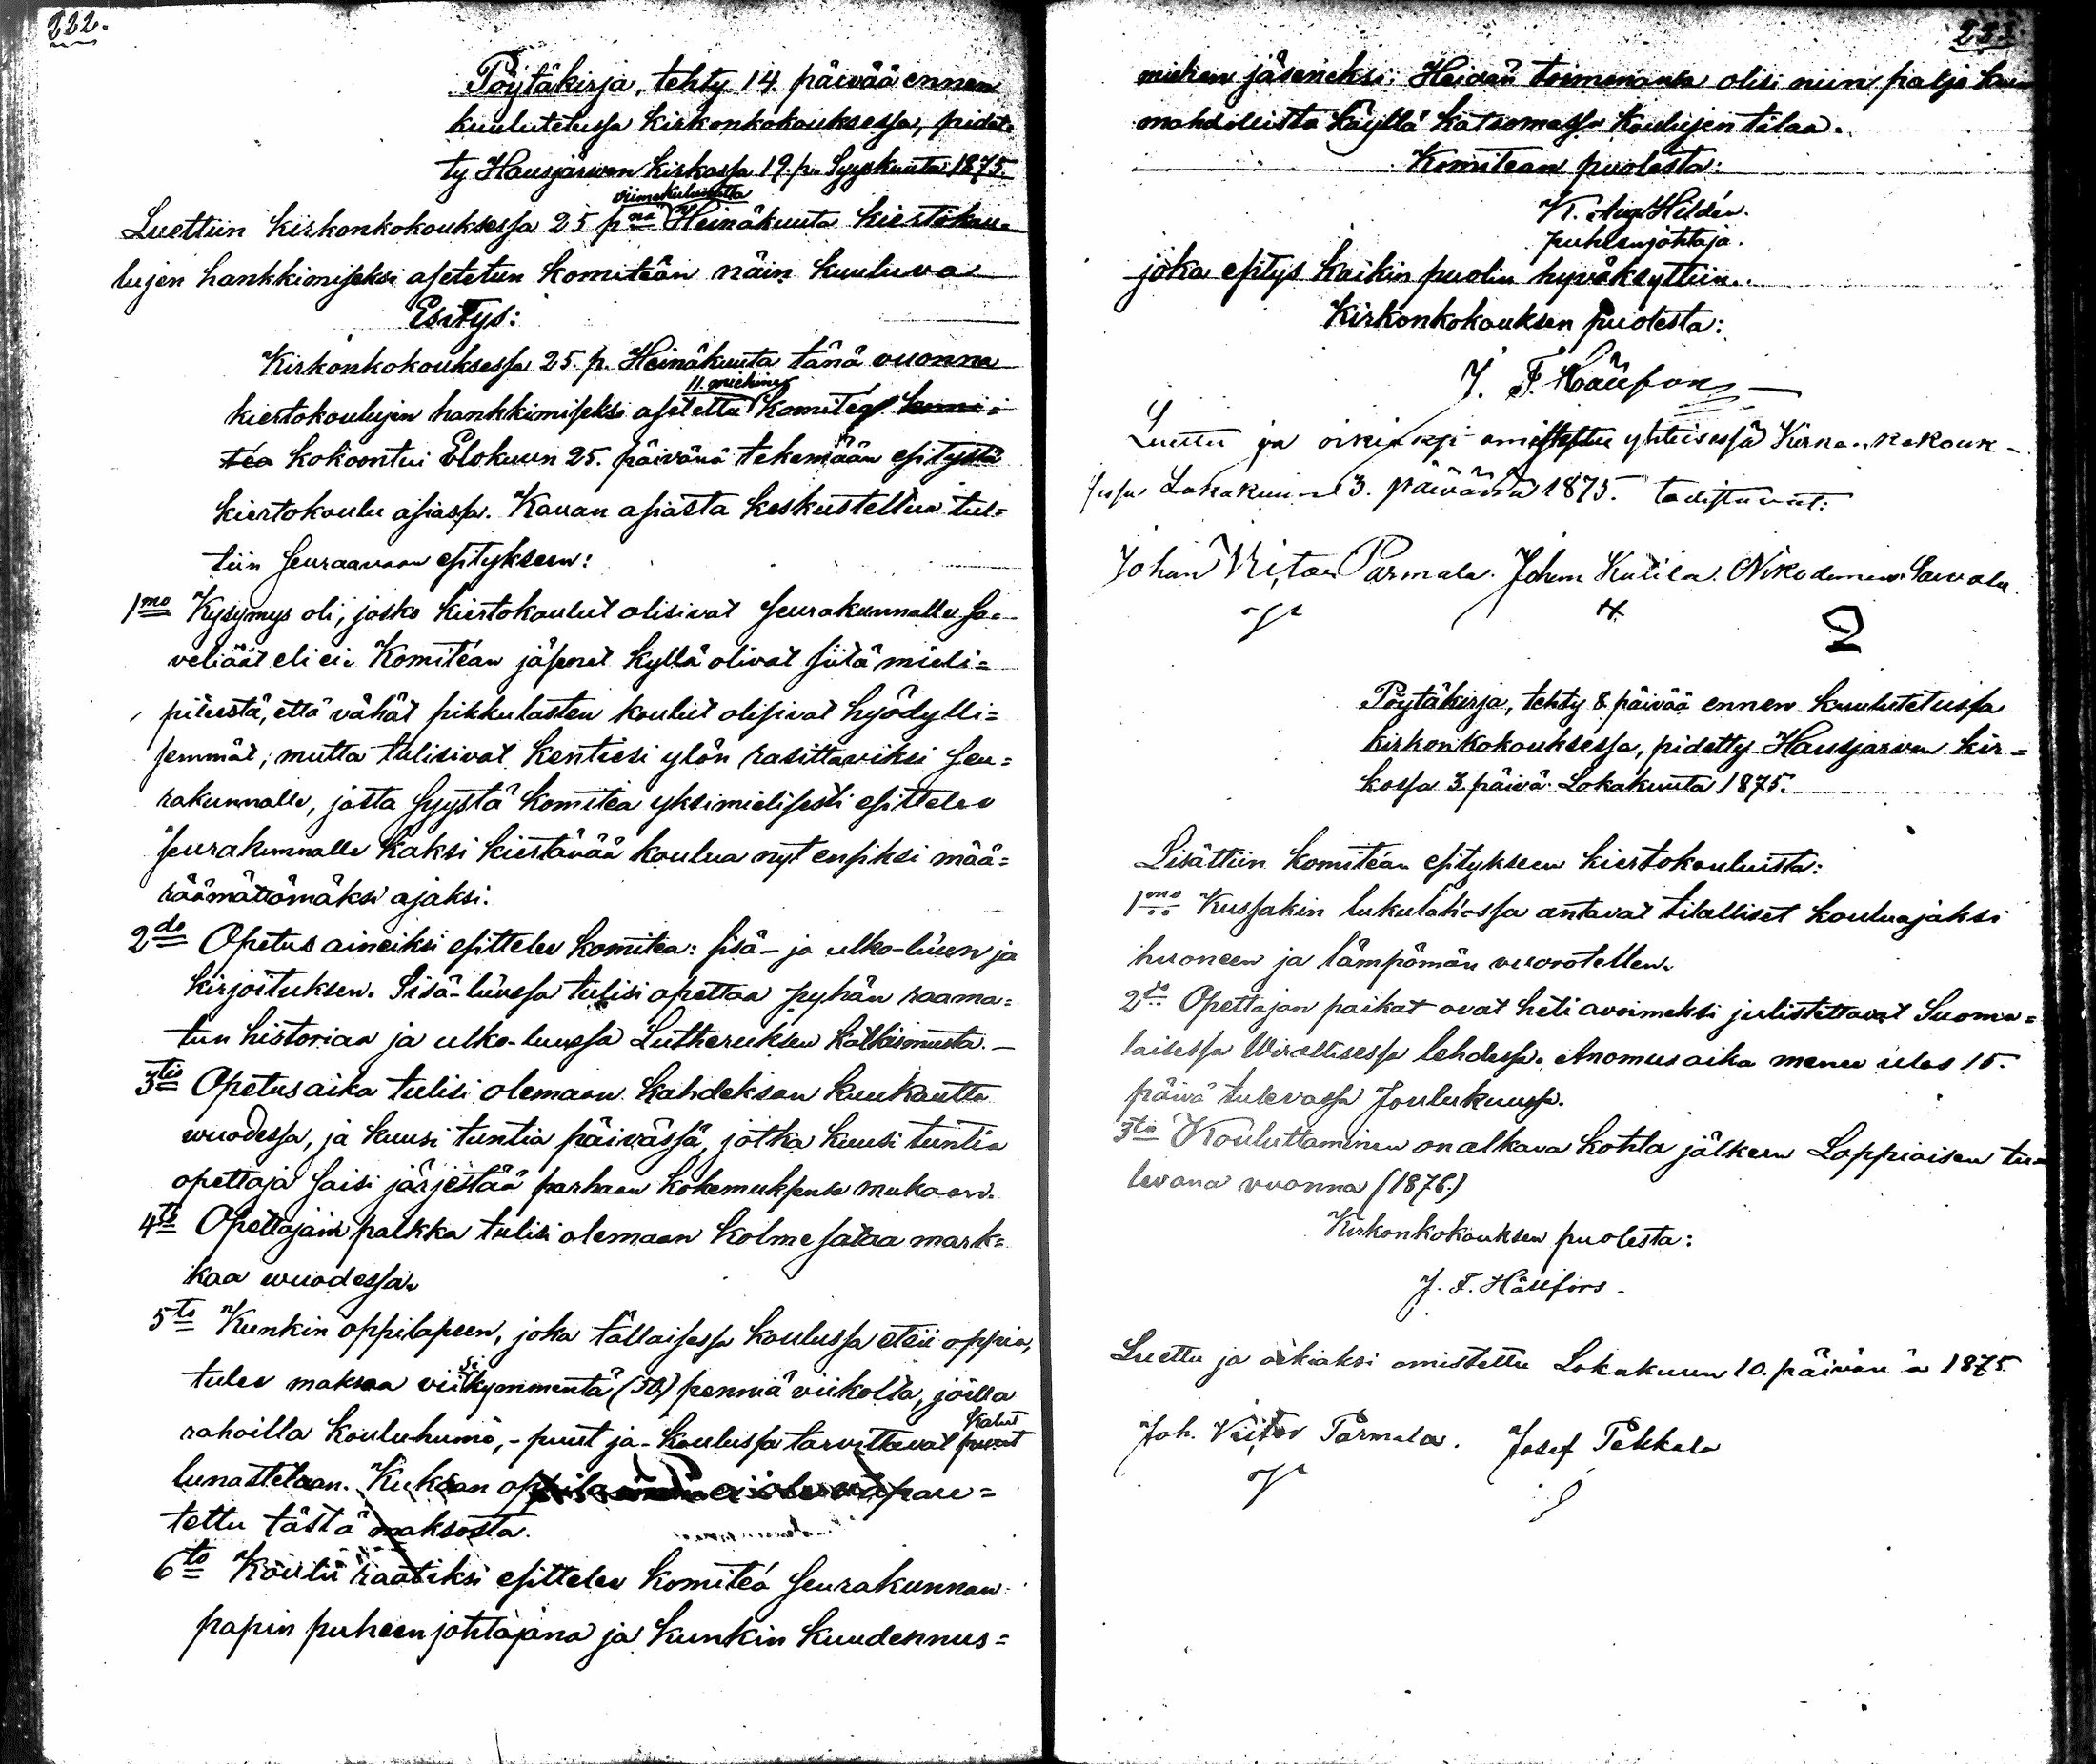 232.
Pöytäkirja, tehty 14. päivää ennen
kuulutetussa kirkonkokouksessa, pidet-
ty Hausjärwen kirkossa 19. p. Syyskuuta 1875.
viimekuluneetta
Luettiin kirkonkokouksessa 25 p:nä Heinäkuuta kiertokou-
lujen hankkimiseksi asetetun komiteän näin kuuluva
Esitys:
Kirkonkokouksessa 25. p. Heinäkuuta tänä vuonna
11. miehinen
kiertokoulujen hankkimiseksi asetettu komitéa komi-
téa kokoontui Elokuun 25. päivänä tekemään esitystä
kiertokoulu asiassa. Kauan asiasta keskusteltua tul=
tiin seuraavaan esitykseen:
1mo Kysymys oli, josko kiertokoulut olisivat seurakunnalle so-
veliäät eli ei. Komitéan jäsenet kyllä olivat siitä mieli=
piteestä, että vähät pikkulasten koulut olisivat hyödylli=
semmät; mutta tulisivat kentiesi ylön rasittaviksi seu=
rakunnalle, josta syystä komitea yksimielisesti esittelee
seurakunnalle kaksi kiertävää koulua nyt ensiksi mää=
räämättömäksi ajaksi.
2do Opetus aineiksi esittelee komitea: sisä- ja ulko-luvun ja
kirjoituksen. Sisä-luvussa tulisi opettaa pyhän raama=
tun historiaa ja ulko-luvussa Lutheruksen katkismusta.—
3tio Opetusaika tulisi olemaan kahdeksan kuukautta
wuodessa, ja kuusi tuntia päivässä, jotka kuusi tuntia
opettaja saisi järjestää parhaan kokemuksensa mukaan.
4to Opettajain palkka tulisi olemaan kolme sataa mark=
kaa wuodessa.
5to Kunkin oppilapsen, joka tällaisessa koulussa etsii oppia,
si
tulee maksaa viikymmentä (50) penniä viikolta, joilla
kalut
rahoilla kouluhuone, -puut ja koulussa tarvittavat puut
lunastetaan. Kukaan oppilaan ei ole vapau=
tettu tästä maksosta.
6to Koulu raatiksi esittelee komiteá seurakunnan
papin puheenjohtajana ja kunkin kuudennus=
233.
miehen jäseneksi. Heidän toimenansa olisi niin paljo kuin
mahdollista käydä katsomassa koulujen tilaa.
Komitean puolesta:
K. Aug. Hildén.
puheenjohtaja.
joka esitys kaikin puolin hyväksyttiin.
Kirkonkokouksen puolesta:
J. F. Häusfors
Luettu ja oikiaksi omistettu yhteisessä Kirkonkokouk-
sessa Lokakuun 3. päivänä 1875. todistavat:
Johan Viitan Parmala. Johan Kutila. Nikodemus Sawala.
2
Pöytäkirja, tehty 8 päivää ennen kuulutetussa
kirkonkokouksessa, pidetty Hausjärven kir=
kossa 3. päivä Lokakuuta 1875.
Lisättiin komitéan esitykseen kiertokouluista:
1mo Kussakin lukulahossa antavat tilalliset kouluajaksi
huoneen ja lämpömän vuorotellen.
2do Opettajan paikat ovat heti avoimeksi julistettavat Suoma=
laisessa Wirallisessa lehdessä. Anomusaika menee ulos 15.
päivä tulevassa Joulukuussa.
3tio Kouluttaminen on alkava kohta jälkeen Loppiaisen tu=
levana vuonna (1876.)
Kirkonkokouksen puolesta:
J. F. Häusfors.
Luettu ja oikiaksi omistettu Lokakuun 10. päivänä 1875.
Joh. Viitan Parmala. Josef Pekkala